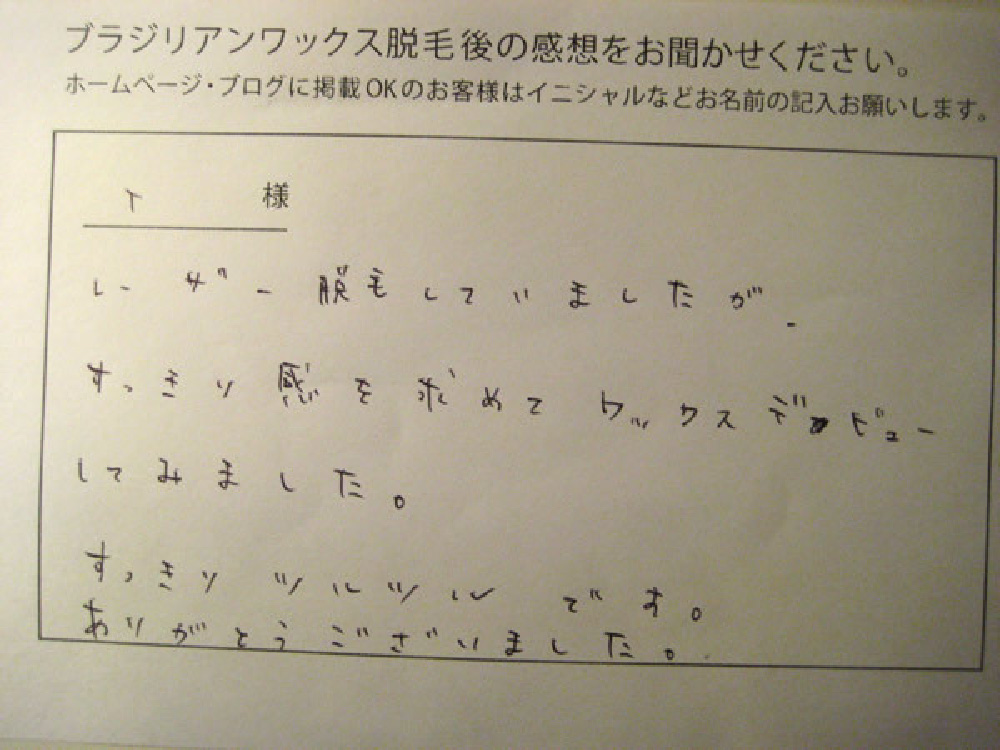 ブラジリアンワックス脱毛後の感想をお聞かせください。
ホームページ・ブログに掲載OKのお客様はイニシャルなどお名前の記入お願いします。
様
レーザー脱毛していましたが、
すっきり感を求めてワックスデビュー
してみました。
すっきりツルツルです。
ありがとうございました。